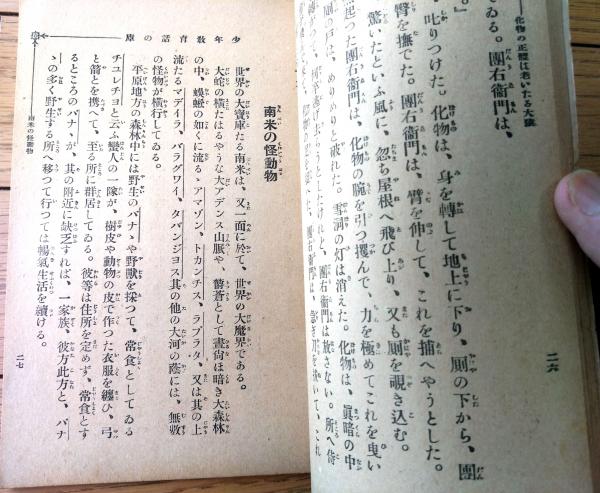 化物の正體は老いたる大猿
』
ゐる。團右衞門は、
叱りつけた。化物は、身を轉して地上に下り、厠の下から、團
臂を撫でた。團右衞門は、臂を伸して、これを捕へやうとした。
驚いたといふ風に、忽ち屋根へ飛び上り、又も厠を覗き込む。
起つた團右衞門は、化物の腕を引つ攫んで、力を極めてこれを曳い
の戸は、めりめりと破れた。雪洞の灯は消えた。化物は、眞暗の中
逃げ去らうとしたけれど、團右衞門は放さない。所へ侍
二六
少年敎育話の庫
南米の怪動物
世界の大寶庫たる南米は、又一面に於て、世界の大魔界である。
大蛇の橫たはるやうな大アデンス山脈や、鬱蒼として晝尙ほ暗き大森林
の中、蜈蚣の如くに流るゝアマゾン、トカンチス、ラプラタ、又は其の上
流たるマデイラ、パラグワイ、タバンジヨス其の他の大河の蔭には、無數
の怪物が橫行してゐる。
平原地方の森林中には野生のバナゝや野獸を採つて、常食としてゐる
チユレチヨと云ふ蠻人の一隊が、樹皮や動物の皮で作つた衣服を纏ひ、弓
と箭とを携へて、至る所に群居してゐる。彼等は住所を定めず、常食とす
るところのバナゝが、其の附近に缺乏すれば、一家族、彼方此方と、バナ
ゝの多く野生する所へ移つて行つては暢氣生活を續ける。
南米の怪動物
二七